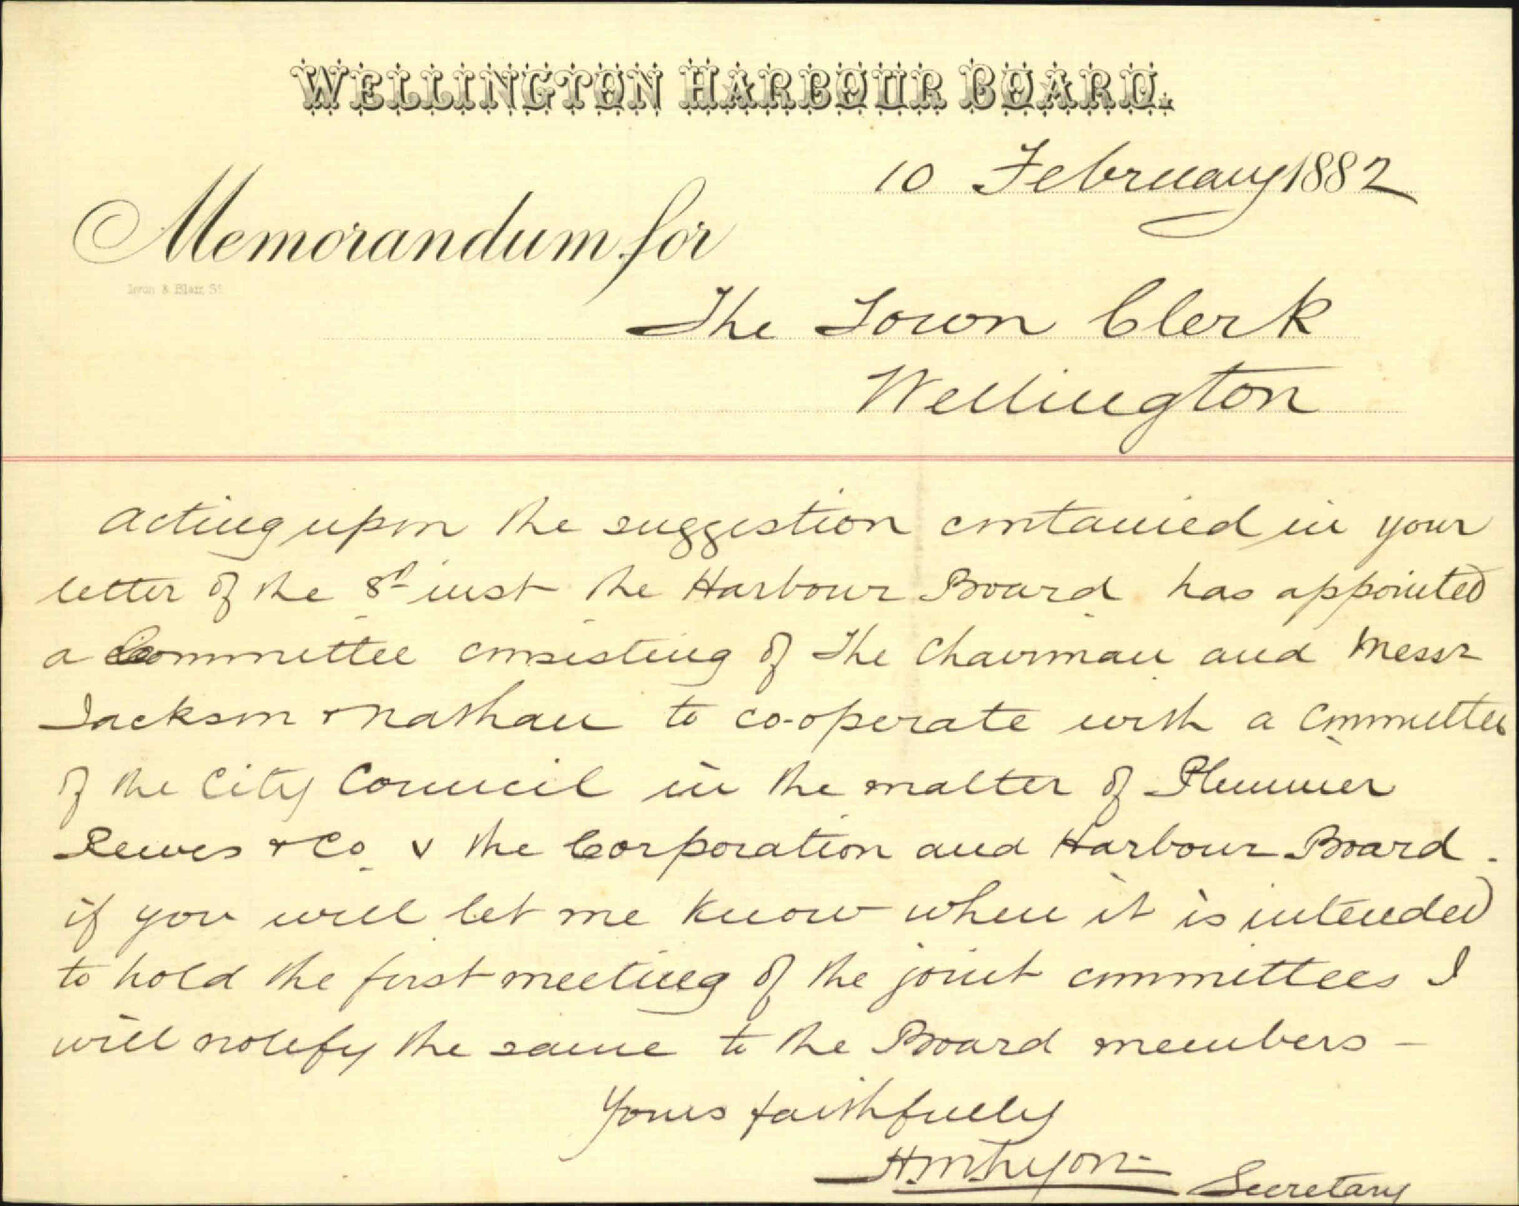 WELLINGTON HARBOUR BOARD.
10 February 1882
Memorandum for
Lyon & Blair
The Town Clerk
Wellington
Acting upon the suggestion contained in your
letter of the 8th inst the Harbour Board has appointed
a Committee consisting of The Chairman and Messrs
Jackson & Nathan to co-operate with a Committee
of the City Council in the matter of Plimmer
Reeves & Co v the Corporation and Harbour Board.
if you will let me know when it is intended
to hold the first meeting of the joint committees I
will notify the same to the Board members –
Yours faithfully
Secretary